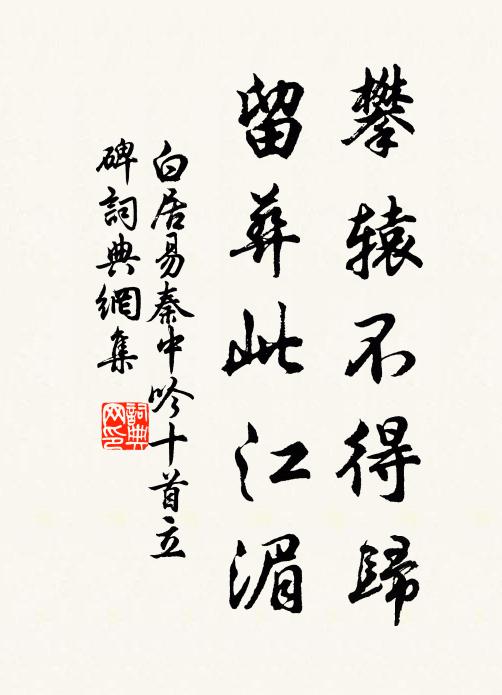 攀辕不得歸
留葬此江湄
白居易秦中吟十首立
碑詞典網集
詞典
网印